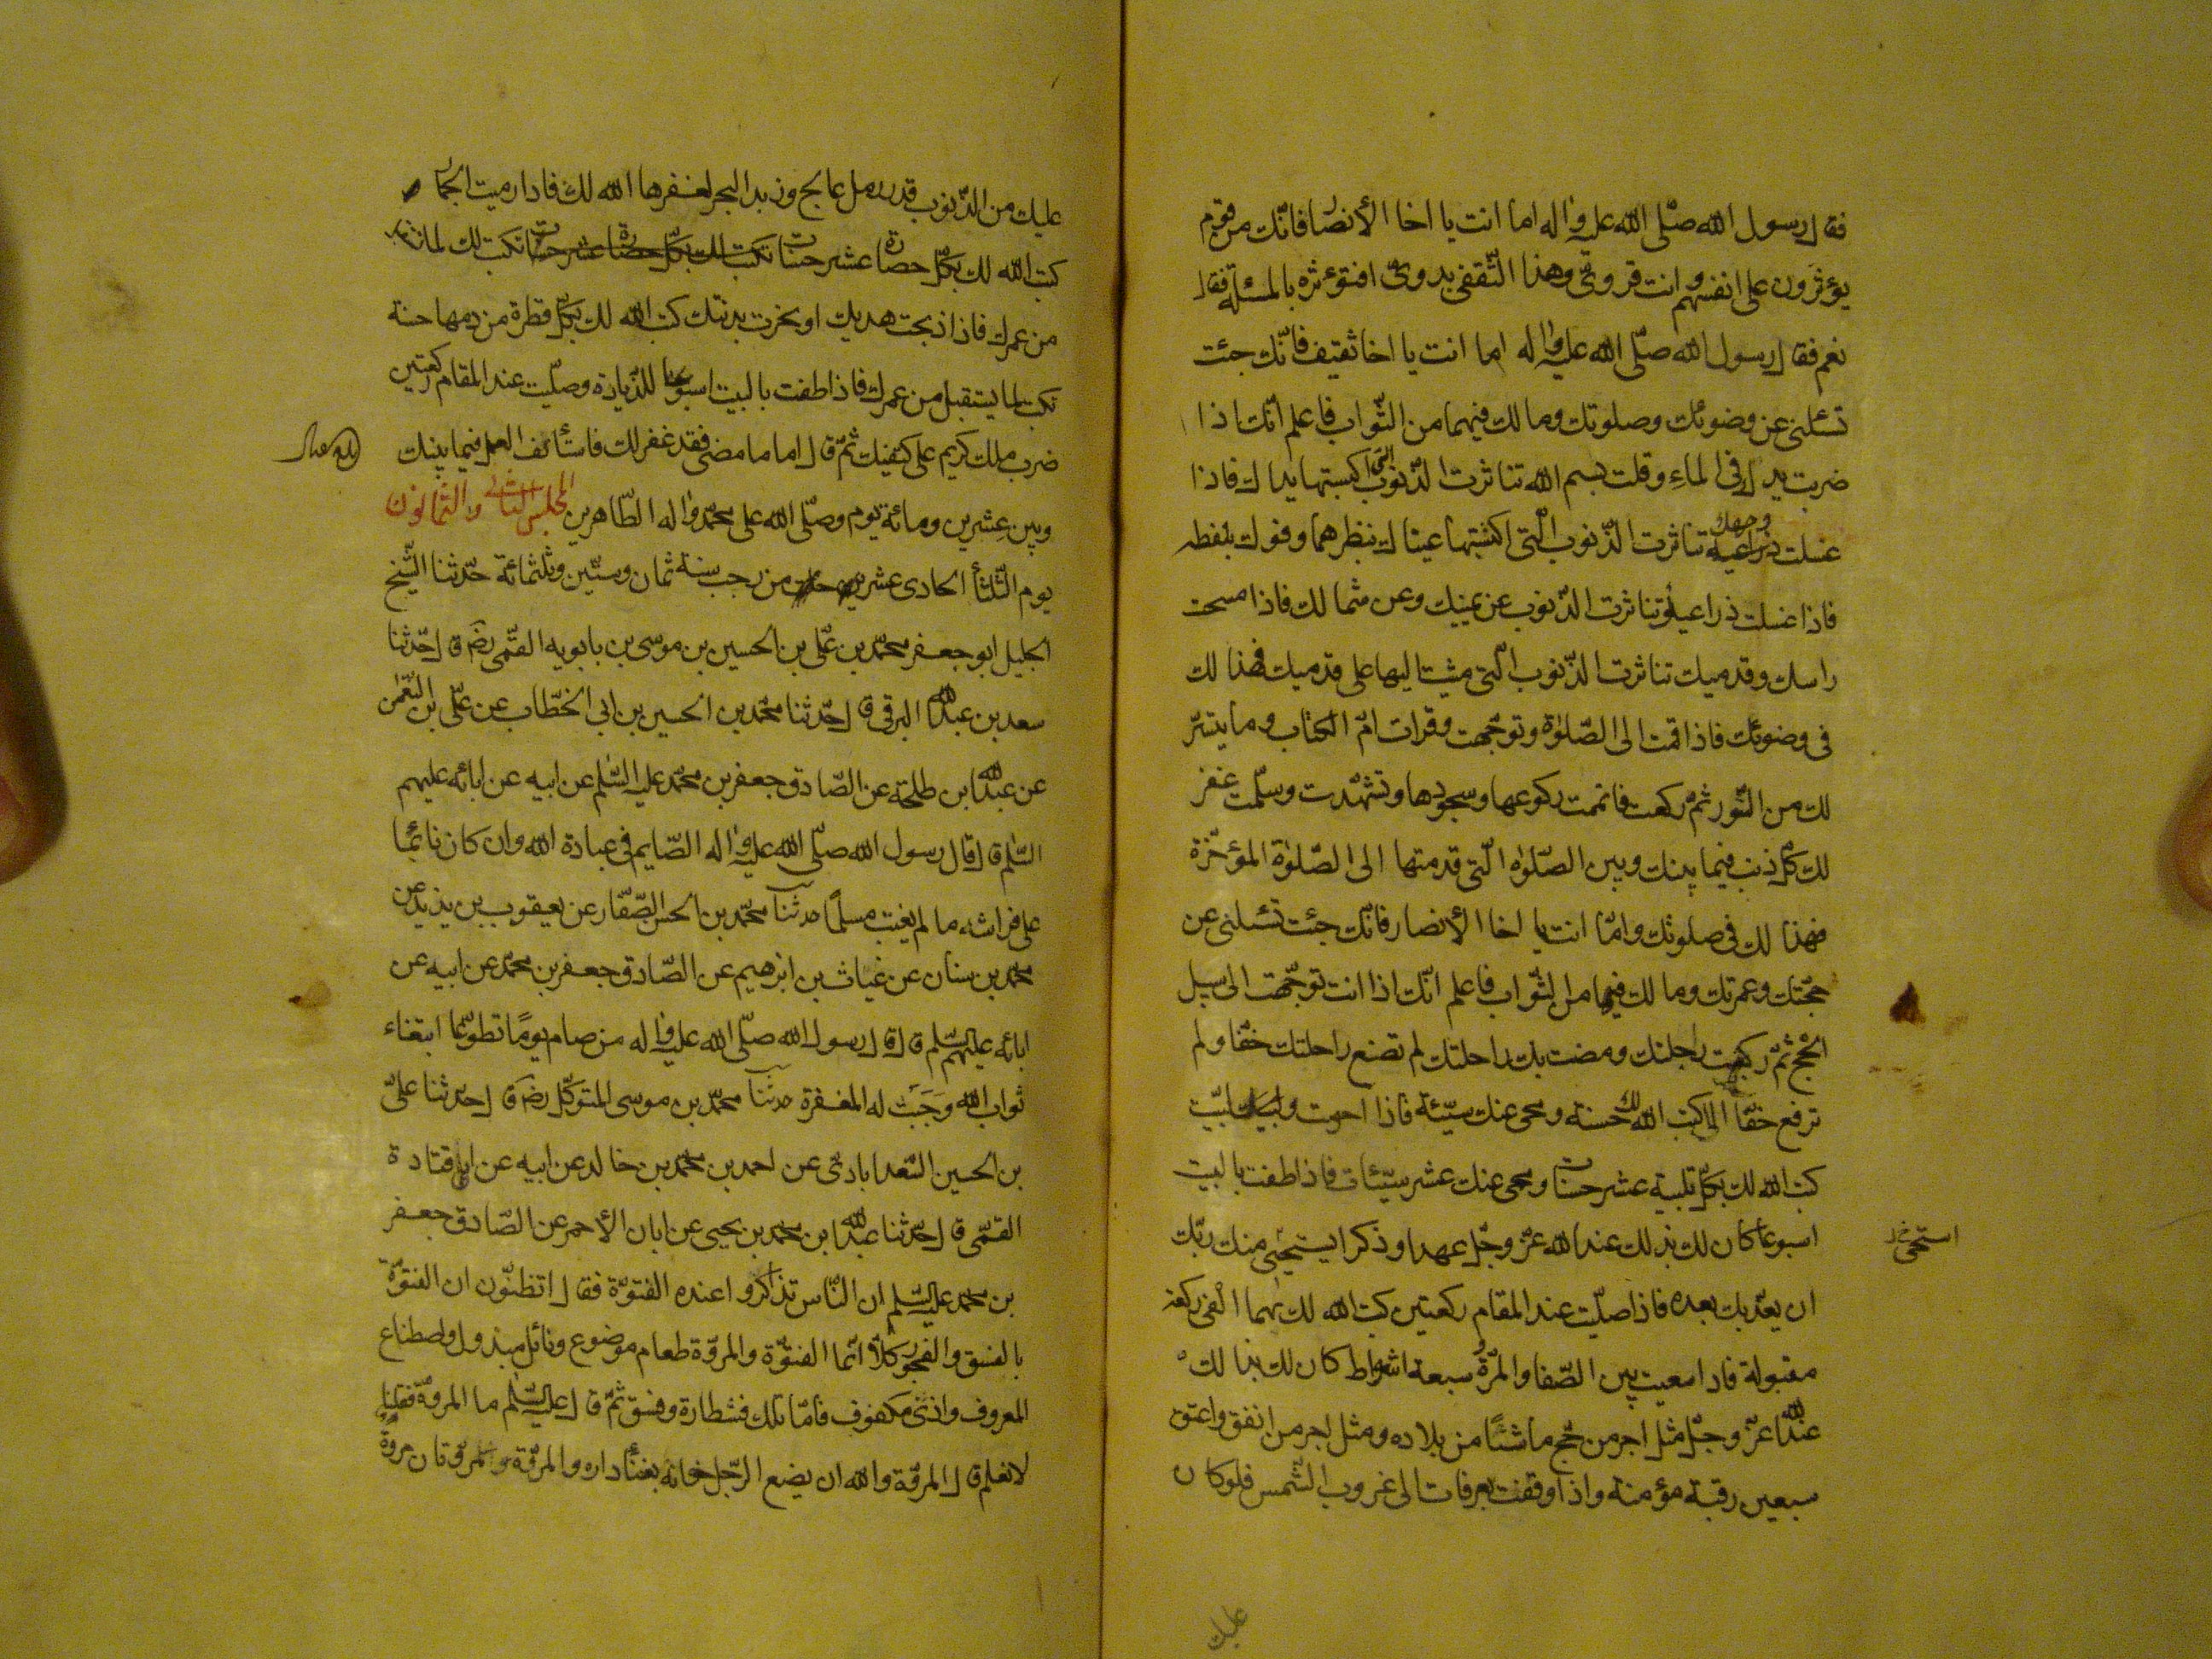 فقال رسول الله صلّى الله عليه واله اما انت يا اخا الأنصار فانّك من قوم
يؤثرون على انفسهم وانت قروىّ وهذا الثّقفى بدوىّ افتؤثره بالمسئلة فقال
نعم فقال رسول الله صلّى الله عليه واله اما انت يا اخا ثقيف فانّك جئت
تسئلنى عن وضوئك وصلوتك وما لك فيهما من الثّواب فاعلم انّك اذا
ضربت يدك فى الماء وقلت بسم الله تناثرت الذّنوب الّتى اكتسبتها يداك فاذا
غسلت وجهك تناثرت الذّنوب الّتى اكتسبتها عيناك بنظرهما وفوك بلفظه
فاذا غسلت ذراعيك تناثرت الذّنوب عن يمينك وعن شمالك فاذا مسحت
راسك وقدميك تناثرت الذّنوب الّتى مشيت اليها على قدميك فهذا لك
فى وضوئك فاذا قمت الى الصّلوة وتوجّهت وقرات امّ الكتاب وما يتسّر
لك من السّور ثمّ ركعت فاتممت ركوعها وسجودها وتشهّدت وسلّمت غفر
لك كلّ ذنب فيما بينك وبين الصّلوة الّتى قدمتها الى الصّلوة المؤخّرة
فهذا لك فى صلوتك وامّا انت يا اخا الأنصار فانّك جئت تسئلنى عن
حجّتك وعمرتك وما لك فيهما من الثّواب فاعلم انّك اذا انت توجّهت الى سبيل
الحجّ ثمّ ركبت راحلتك ومضت بك راحلتك لم تضع راحلتك خفّا ولم
ترفع خفّا الا كتب الله لك حسنة ومحى عنك سيّئة فاذا احرمت ولبّيت
كتب الله لك بكلّ تلبية عشر حسنات ومحى عنك عشر سيّئات فاذا طفت بالبيت
اسبوعا كان لك بذلك عند الله عزّ وجلّ عهدا وذكرا يستحيى منك ربّك
ان يعذّبك بعده فاذا صلّيت عند المقام ركعتين كتب الله لك بهما الفى ركعة
مقبولة فاذا سعيت بين الصّفا والمروة سبعة اشواط كان لك بذلك
عند الله عزّ وجلّ مثل اجر من حجّ ماشيًا من بلاده ومثل اجر من انفق واعتق
سبعين رقبة مؤمنة واذا وقفت بعرفات الى غروب الشّمس فلو كان
عليك
عليك من الذّنوب قدر رمل عالج وزبد البحر لغفرها الله لك فاذا رميت الجمار
كتب الله لك بكلّ حصاة عشر حسنات تكتب لك بكلّ حصاة عشر حسنات تكتب لك لما
من عمرك فاذا ذبحت هديك او نحرت بدنتك كتب الله لك بكلّ قطرة من دمها حسنة
تكتب لما يستقبل من عمرك فاذا طفت بالبيت اسبوعا للزّيارة وصلّيت عند المقام ركعتين
ضرب ملك كريم على كتفيك ثمّ قال اما ما مضى فقد غفر لك فاستأنف العمل فيما بينك
وبين عشرين ومائة يوم وصلّى الله على محمّد واله الطّاهرين المجلس الثانى والثمانون
يوم الثّلثا الحادى عشر من رجب سنة ثمان وستّين وثلثمائة حدّثنا الشّيخ
الجليل ابو جعفر محمّد بن علّى بن الحسين بن موسى بن بابويه القمّى رض قال حدّثنا
سعد بن عبد الله البرقى قال حدّثنا محمّد بن الحسين بن ابى الخطّاب عن علّى بن النّعمن
عن عبد الله ابن طلحة عن الصّادق جعفر بن محمّد عليه السّلم عن ابيه عن ابائه عليهم
السّلم قال قال رسول الله صلّى الله عليه واله الصّايم فى عبادة الله وان كان نائما
على فراشه ما لم يغتب مسلما حدثنا محمّد بن الحسن الصّفّار عن يعقوب بن يزيد عن
محمد بن سنان عن غياث بن ابرهيم عن الصّادق جعفر بن محمّد عن ابيه عن
ابائه عليهم السّلم قال قال رسول الله صلّى الله عليه واله من صام يومًا تطوّعا ابتغاء
ثواب الله وَجَبَت له المغفرة حدثنا محمّد بن موسى المتوكّل رض قال حدّثنا علىّ
بن الحسين السّعدابادى عن احمد بن محمّد بن خالد عن ابيه عن ابى قتادة
القمّى قال حدّثنا عبد الله ابن محمد بن يحيى عن ابان الأحمر عن الصّادق جعفر
بن محمد عليه السّلم ان النّاس تذاكروا عنده الفتوّة فقال اتظنّون ان الفتوّة
بالفسق والفجور كلّا انّما الفتوّة والمروّة طعام موضوع ونائل مبذول واصطناع
المعروف واذى مكفوف فامّا تلك فشطارة وفسق ثمّ قال عليه السّلم ما المروّة فقلنا
لا نعلم قال المروّة والله ان يضع الرّجل خوانه بفناء داره والمروّة مروّتان مروة